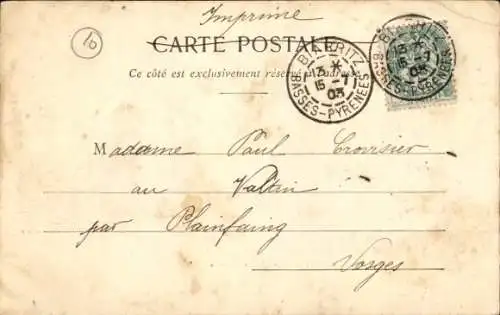 Imprimé
10
CARTE POSTALE
Ce côté est exclusivement réservé à l'adresse
BIARRITZ
13 *
15 -7
03
BASSES-PYRENEES
13 *
15 -7
03
BASSES-PYRENEES
Madame Paul Crovisier
au Valtin
par Plainfaing
Vosges